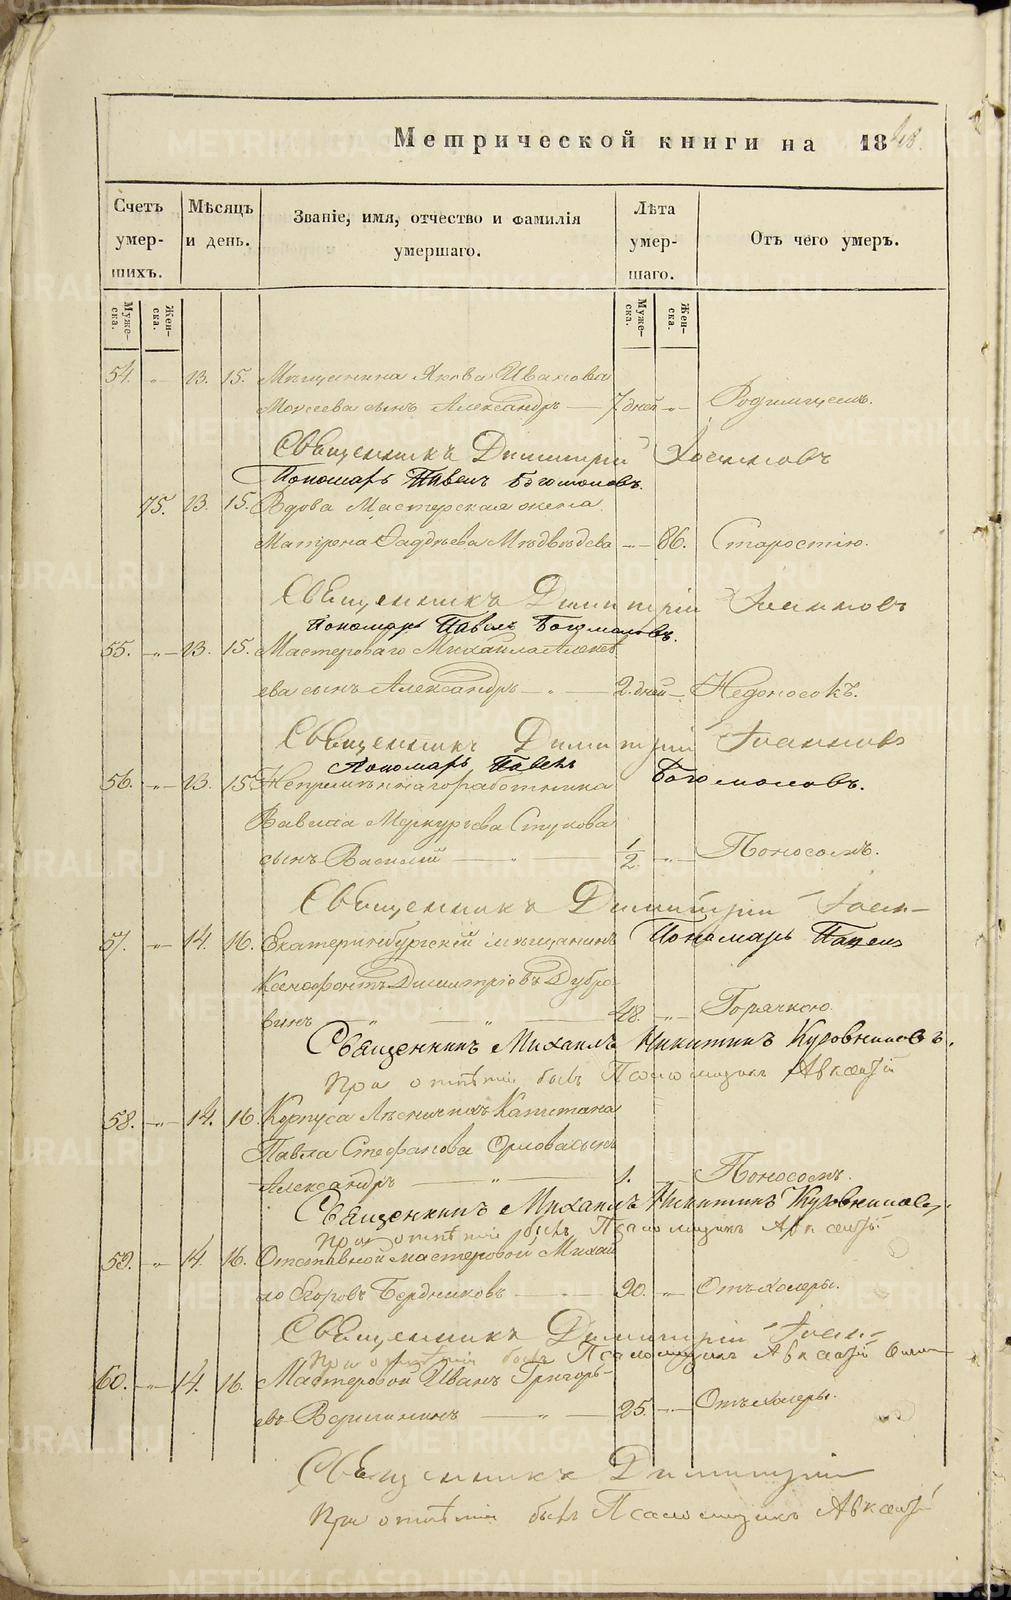 Метрической книги на 1848.
Счетъ умер-шихъ.
Мѣсяцъ и день.
Званіе, имя, отчество и фамилія умершаго.
Лѣта умер-шаго.
Отъ чего умеръ.
Муже-ска.
Жен-ска.
Муже-ска.
Жен-ска.
54. " 13. 15. Мѣщанина Якова Иванова
Моисеева сынъ Александръ — 7 дней " Родимцемъ.
Священникъ Димитрій Іоанновъ
Пономарь Павелъ Богомоловъ.
75. 13. 15. Вдова Мастерская жена
Матрона Фаддѣева Мѣдвѣдева — " — 86. Старостію.
Священникъ Димитрій Іоанновъ
Пономарь Павелъ Богомоловъ.
55. — " — 13. 15. Мастероваго Михайла Алекѣ
ева сынъ Александръ — " — 2. дней — Недоносокъ.
Священникъ Димитрій Іоанновъ
Пономарь Павелъ Богомоловъ.
56. — " — 13. 15. Непремѣннаго работника
Вавила Меркурьева Стукова
сынъ Василій — " — 1/2. — " — Поносомъ.
Священникъ Димитрій Іоан-
57. — " — 14. 16. Екатеринбургскій мѣщанинъ
Пономарь Павелъ
Ксенофонтъ Димитріевъ Дубро
винъ — " — " — 48. — " — Горячкою.
Священникъ Михаилъ Никитинъ Куровниковъ.
При отпѣтіи былъ Псаломщикъ Авксетій
58. — " — 14. 16. Корпуса Лѣсничихъ Капитана
Павла Стефанова Орлова сынъ
Александръ — " — 1. — Поносомъ.
Священникъ Михаилъ Никитинъ Куровниковъ.
При отпѣтіи былъ Псаломщикъ Авксетій
59. — " — 14. 16. Отставной мастеровой Михаи
ло Егоровъ Бердниковъ — 90. — " — Отъ холеры.
Священникъ Димитрій Іоан-
При отпѣтіи былъ Псаломщикъ Авксетій
60. — " — 14. 16. Мастеровой Иванъ Григорь-
евъ Вершининъ — " — 25. — " — Отъ холеры.
Священникъ Димитрій
При отпѣтіи былъ Псаломщикъ Авксетій
METRIKI.GASO-URAL.RU